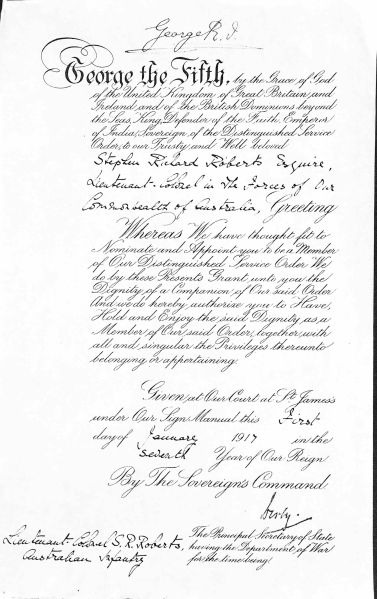 George R.I.
George the Fifth, by the Grace of God
of the United Kingdom of Great Britain and
Ireland and of the British Dominions beyond
the Seas, King, Defender of the Faith, Emperor
of India, Sovereign of the Distinguished Service
Order, to our Trusty and Well beloved
Stephen Richard Roberts Esquire,
Lieutenant-Colonel in The Forces of Our
Commonwealth of Australia, Greeting
Whereas We have thought fit to
Nominate and Appoint you to be a Member
of Our Distinguished Service Order We
do by these Presents Grant unto you the
Dignity of a Companion of Our said Order
And we do hereby authorize you to Have,
Hold and Enjoy the said Dignity as a
Member of Our said Order, together with
all and singular the Privileges thereunto
belonging or appertaining.
Given at Our Court at St James's
under Our Sign Manual this First
day of January 1917 in the
Seventh Year of Our Reign
By The Sovereign's Command
Derby.
Lieutenant-Colonel S.R. Roberts,
Australian Infantry
The Principal Secretary of State
having the Department of War
for the time being